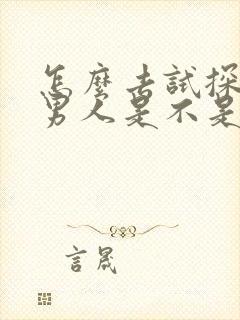 怎麼去試探
男人是不是
言晟